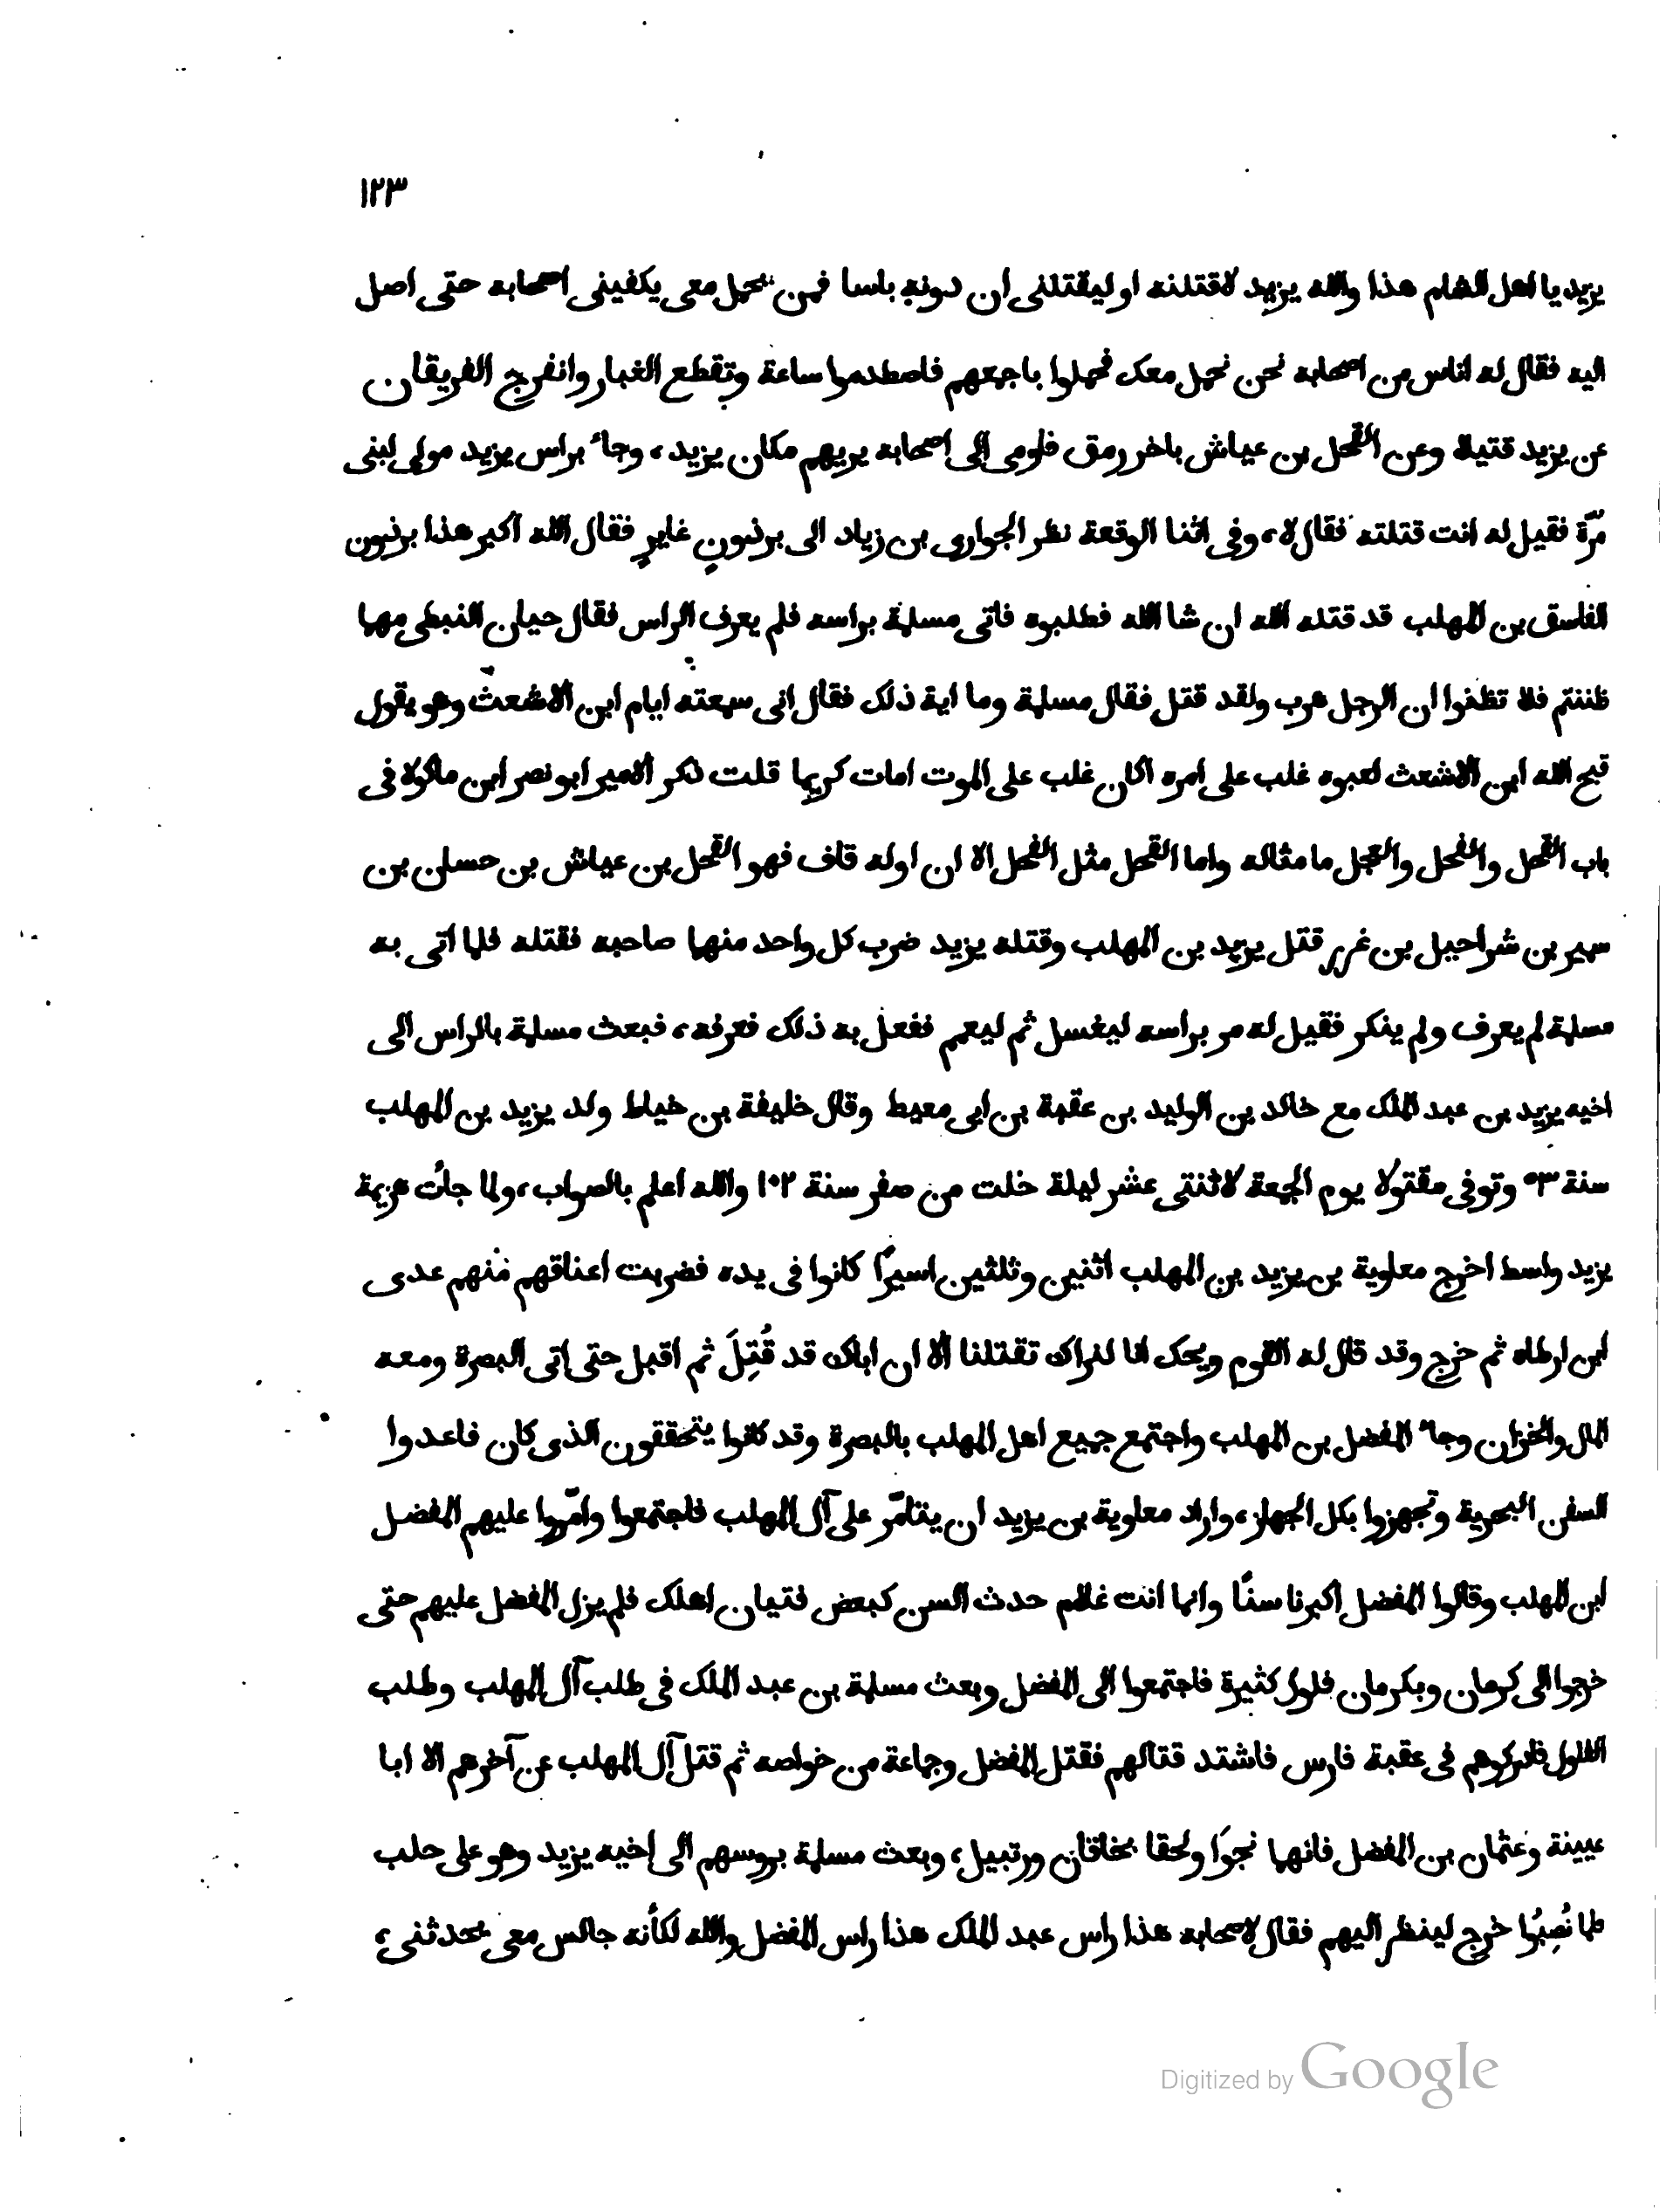 ١٢٣
يزيد يا اهل الشام هذا والله يزيد لاقتلنه او ليقتلنى ان دونه باسا فمن يحمل معى يكفينى اصحابه حتى اصل
اليه فقال له اناس من اصحابه نحن نحمل معك فحملوا باجمعهم فاصطدموا ساعة وتقطع الغبار وانفرج الفريقان
عن يزيد قتيلا وعن القحل بن عياش باخر رمق فاومى الى اصحابه يريهم مكان يزيد، وجاء براس يزيد مولى لبنى
مرّة فقيل له انت قتلته فقال لا، وفى اثنا الوقعة نظر الحوارى بن زياد الى برذونٍ غايرٍ فقال الله اكبر هذا برذون
الفاسق بن المهلب قد قتله الله ان شا الله فطلبوه فاتى مسلمة براسه فلم يعرف الراس فقال حيان النبطى مهما
ظننتم فلا تظنوا ان الرجل هرب ولقد قتل فقال مسلمة وما اية ذلك فقال انى سمعته ايام ابن الاشعث وهو يقول
قبح الله ابن الاشعث لعبوه غلب على امره اكان غلب على الموت امات كريما قلت ذكر الامير ابو نصر ابن ماكولا فى
باب القحل والفحل والعجل ما مثاله واما القحل مثل الفحل الا ان اوله قاف فهو القحل بن عياش بن حسان بن
سمير بن شراحيل بن غرير قتل يزيد بن المهلب وقتله يزيد ضرب كل واحد منهما صاحبه فقتله فلما اتى به
مسلمة لم يعرف ولم ينكر فقيل له مر براسه ليغسل ثم ليعمم ففعل به ذلك فعرفه، فبعث مسلمة بالراس الى
اخيه يزيد بن عبد الملك مع خالد بن الوليد بن عقبة بن ابى معيط وقال خليفة بن خياط ولد يزيد بن المهلب
سنة ٥٣ وتوفى مقتولا يوم الجمعة لاثنتى عشر ليلة خلت من صفر سنة ١٠٢ والله اعلم بالصواب، ولما جاءت هزيمة
يزيد واسط اخرج معاوية بن يزيد بن المهلب اثنين وثلثين اسيرًا كانوا فى يده فضربت اعناقهم منهم عدى
ابن ارطاه ثم خرج وقد قال له القوم ويحك انا لنراك تقتلنا الا ان اباك قد قُتِلَ ثم اقبل حتى اتى البصرة ومعه
المال والخزان وجاء المفضل بن المهلب واجتمع جميع اهل المهلب بالبصرة وقد كانوا يتحققون الذى كان فاعدوا
السفن البحرية وتجهزوا بكل الجهاز، واراد معاوية بن يزيد ان يتامّر على آل المهلب فاجتمعوا وامّروا عليهم المفضل
ابن المهلب وقالوا المفضل اكبرنا سنًا وانما انت غلام حدث السن كبعض فتيان اهلك فلم يزل المفضل عليهم حتى
خرجوا الى كرمان وبكرمان فلول كثيرة فاجتمعوا الى المفضل وبعث مسلمة بن عبد الملك فى طلب آل المهلب وطلب
الفلول فادركوهم فى عقبة فارس فاشتد قتالهم فقتل المفضل وجماعة من خواصه ثم قتل آل المهلب عن آخرهم الا ابا
عيينة وعثمان بن المفضل فانهما نجوَا ولحقا بخاقان ورتبيل، وبعث مسلمة بروسهم الى اخيه يزيد وهو على حلب
لما نُصِبُوا خرج لينظر اليهم فقال لاصحابه هذا راس عبد الملك هذا راس المفضل والله لكأنه جالس معى يحدثنى،
Digitized by Google